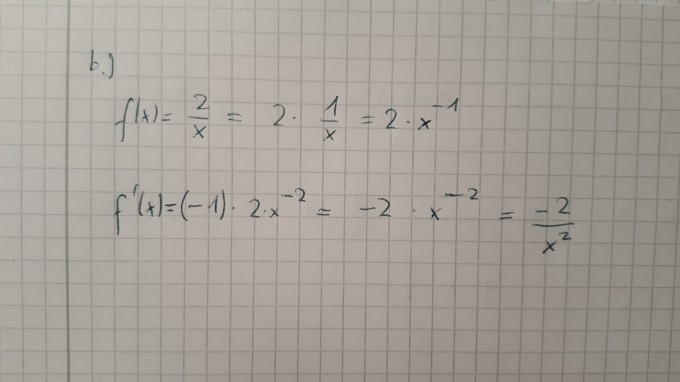 b.)
f(x) = 2/x = 2 · 1/x = 2 · x⁻¹
f'(x) = (-1) · 2 · x⁻² = -2 · x⁻² = -2/x²